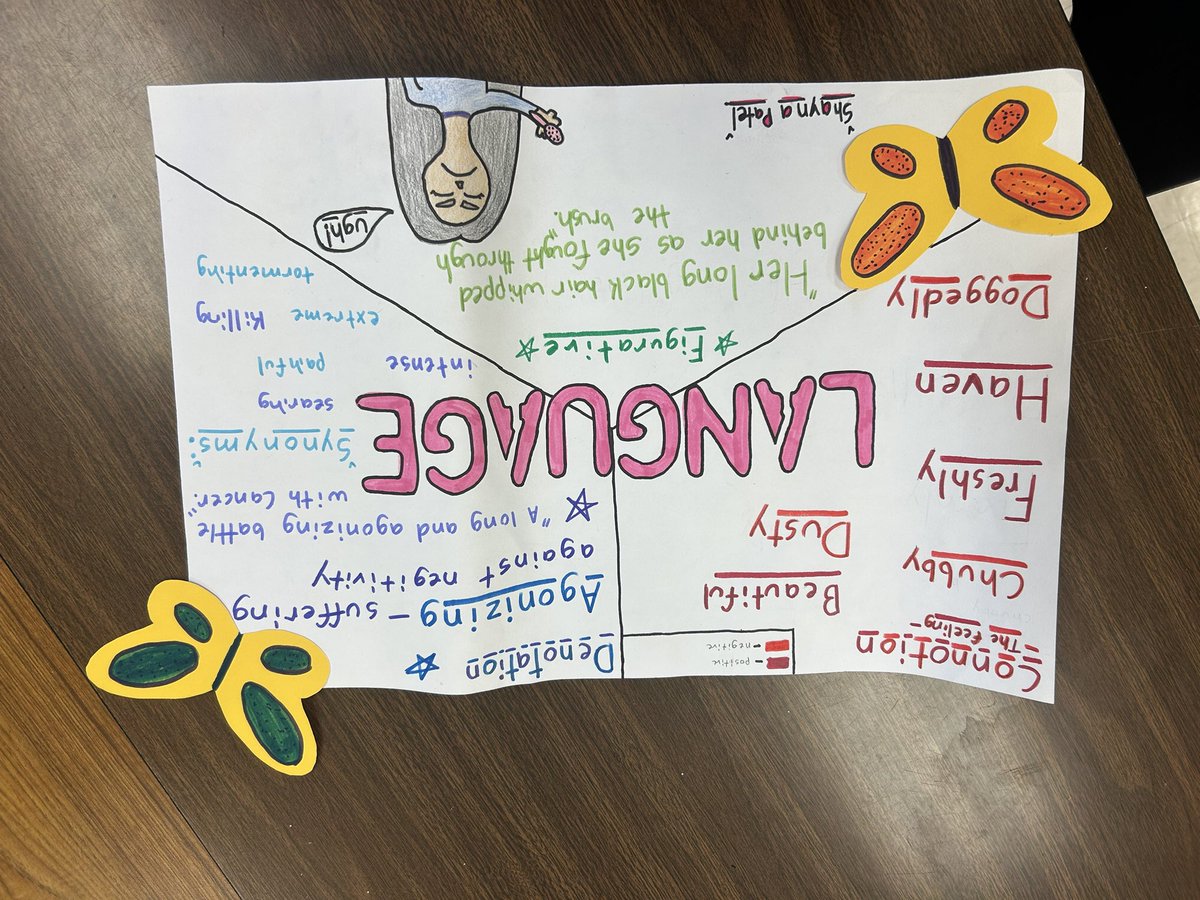 Connotion
-The feeling-
- positive
- negitive
Chubby
Beautiful
Freshly
Dusty
Haven
Doggedly
Denotation
Agonizing - suffering
against negitivity
"A long and agonizing battle
with cancer."
"Synonyms:"
searing
intense painful
extreme killing
tormenting
LANGUAGE
Figurative
"Her long black hair whipped
behind her as she fought through
the brush."
ugh!
"Shayna Patel"